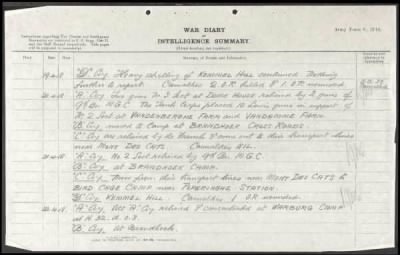 WAR DIARY
or
INTELLIGENCE SUMMARY.
(Erase heading not required.)
Army Form C. 2118.
Instructions regarding War Diaries and Intelligence
Summaries are contained in F. S. Regs., Part II.
and the Staff Manual respectively. Title pages
will be prepared in manuscript.
Place
Date
Hour
Summary of Events and Information
"D" Coy Heavy shelling of KEMMEL HILL continued Nothing
further to report Casualties 2 O.R. killed 1 O.R. wounded.
"A" Coy Two guns No 2 Sect at relieved by 2 guns of
M.G.C. The Tank Corps placed 10 Lewis guns in support of
No 2 Sect at VANDENBERGHE FARM and VANDROMME FARM.
"B" Coy moved to Camp at BRANDHOEK CROSS ROADS.
"C" Coy are relieved by French & came out to their transport lines
near MONT DES CATS Casualties Nil.
"A" Coy No 2 Sect relieved by M.G.C.
"B" Coy at BRANDHOEK CAMP.
"C" Coy Move from their transport lines near MONT DES CATS to
BIRD CAGE CAMP near POPERINGHE STATION.
"D" Coy KEMMEL HILL. Casualties 1 O.R. wounded.
"A" Coy "A" Coy relieved & concentrated at WARBURG CAMP
at
"B" Coy At Brandhoek.